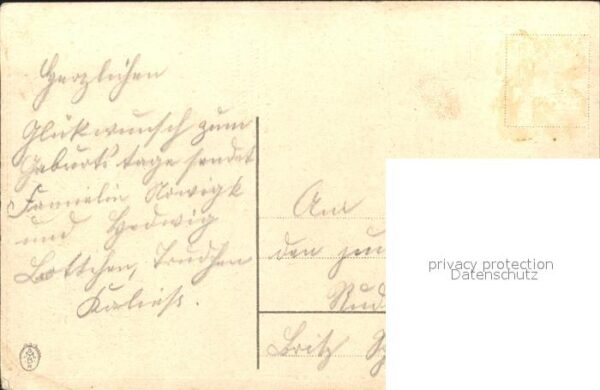 Herzlichen
Glükwunsch zum
Geburtstage sendet
Familie Nowigk
und Hedwig
Lottchen, Trudchen
An
den jun
Rud
Britz
privacy protection
Datenschutz